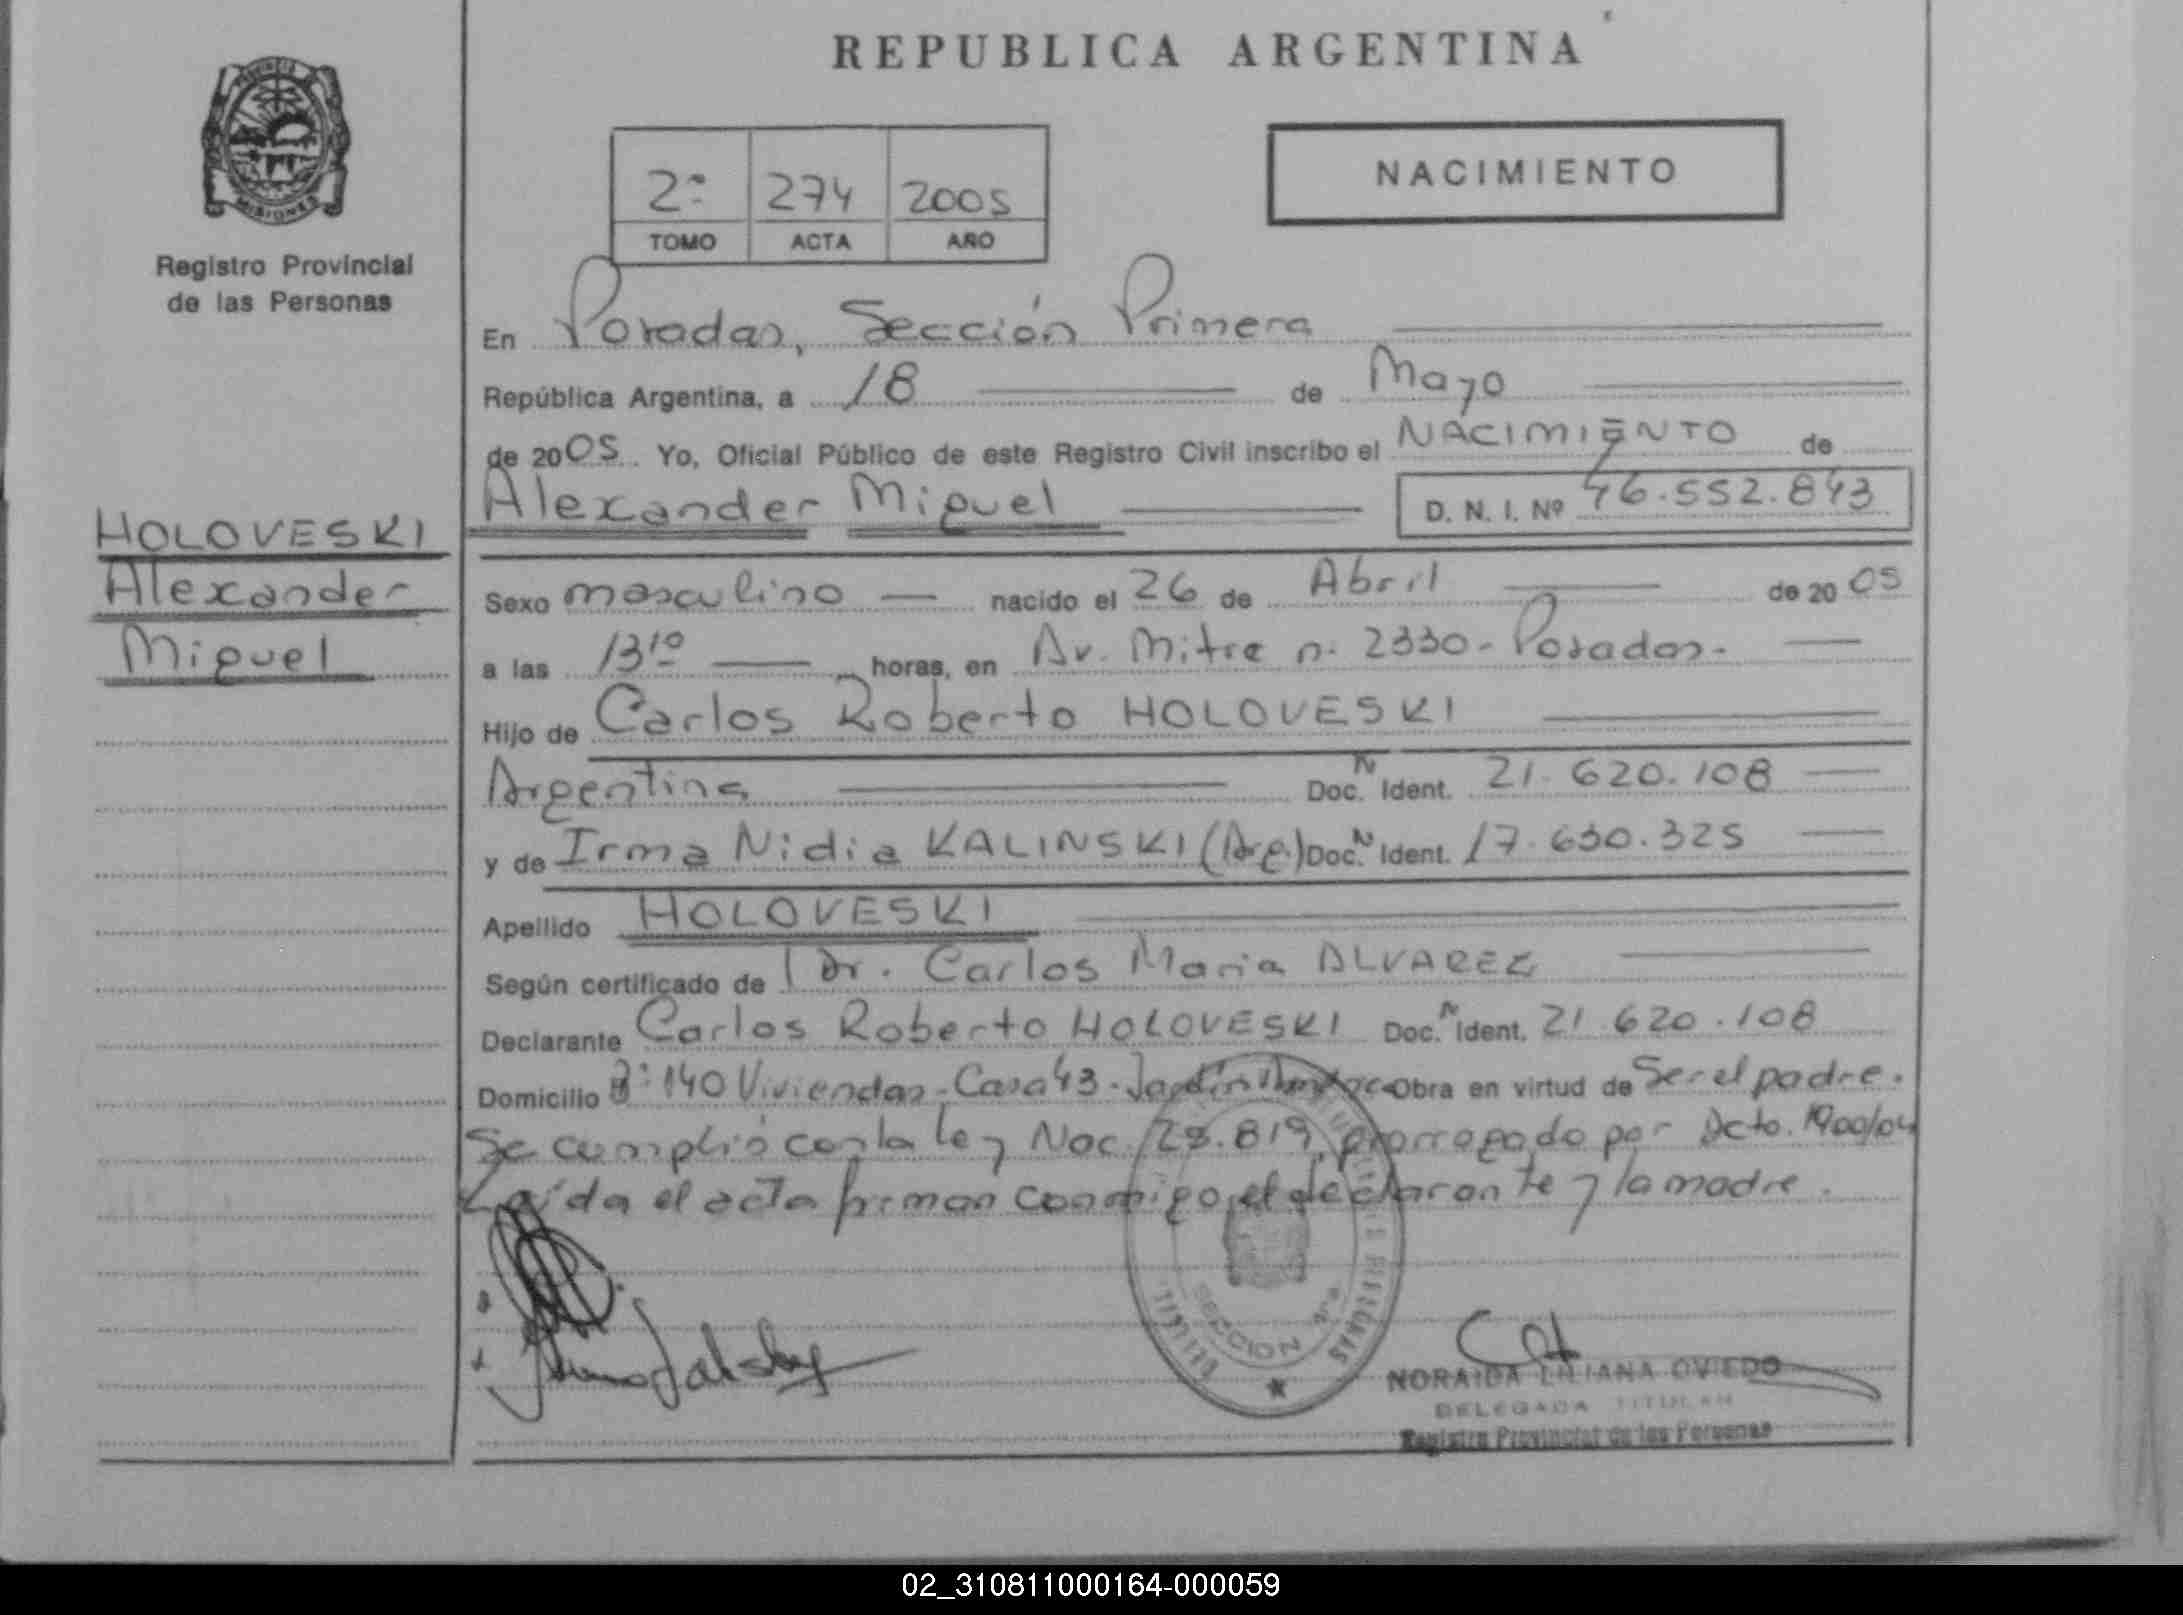 REPUBLICA ARGENTINA
PROVINCIA
MISIONES
Registro Provincial
de las Personas
2º 274 2005
TOMO ACTA AÑO
NACIMIENTO
En Posadas, Sección Primera
República Argentina, a 18 de Mayo
de 2005 Yo, Oficial Público de este Registro Civil inscribo el NACIMIENTO de
Alexander Miguel D. N. I. Nº 46.552.843
HOLOVESKI
Alexander
Miguel
Sexo masculino nacido el 26 de Abril de 2005
a las 13¹⁰ horas, en Av. Mitre n. 2330 - Posadas.
Hijo de Carlos Roberto HOLOVESKI
Argentina Doc. N Ident. 21.620.108
y de Irma Nidia KALINSKI (Arg.) Doc. N Ident. 17.630.325
Apellido HOLOVESKI
Según certificado de Dr. Carlos Maria ALVAREZ
Declarante Carlos Roberto HOLOVESKI Doc. N Ident. 21.620.108
Domicilio Bº 140 Viviendas - Casa 43 - Jardín Obra en virtud de Ser el padre.
Se cumplió con la ley Nac. prorrogado por Dcto. 1900/04
Leída el acta firman conmigo el declarante y la madre.
SECCION 1ra
NORAIDA LILIANA OVIEDO
DELEGADA TITULAR
Registro Provincial de las Personas
02_310811000164-000059